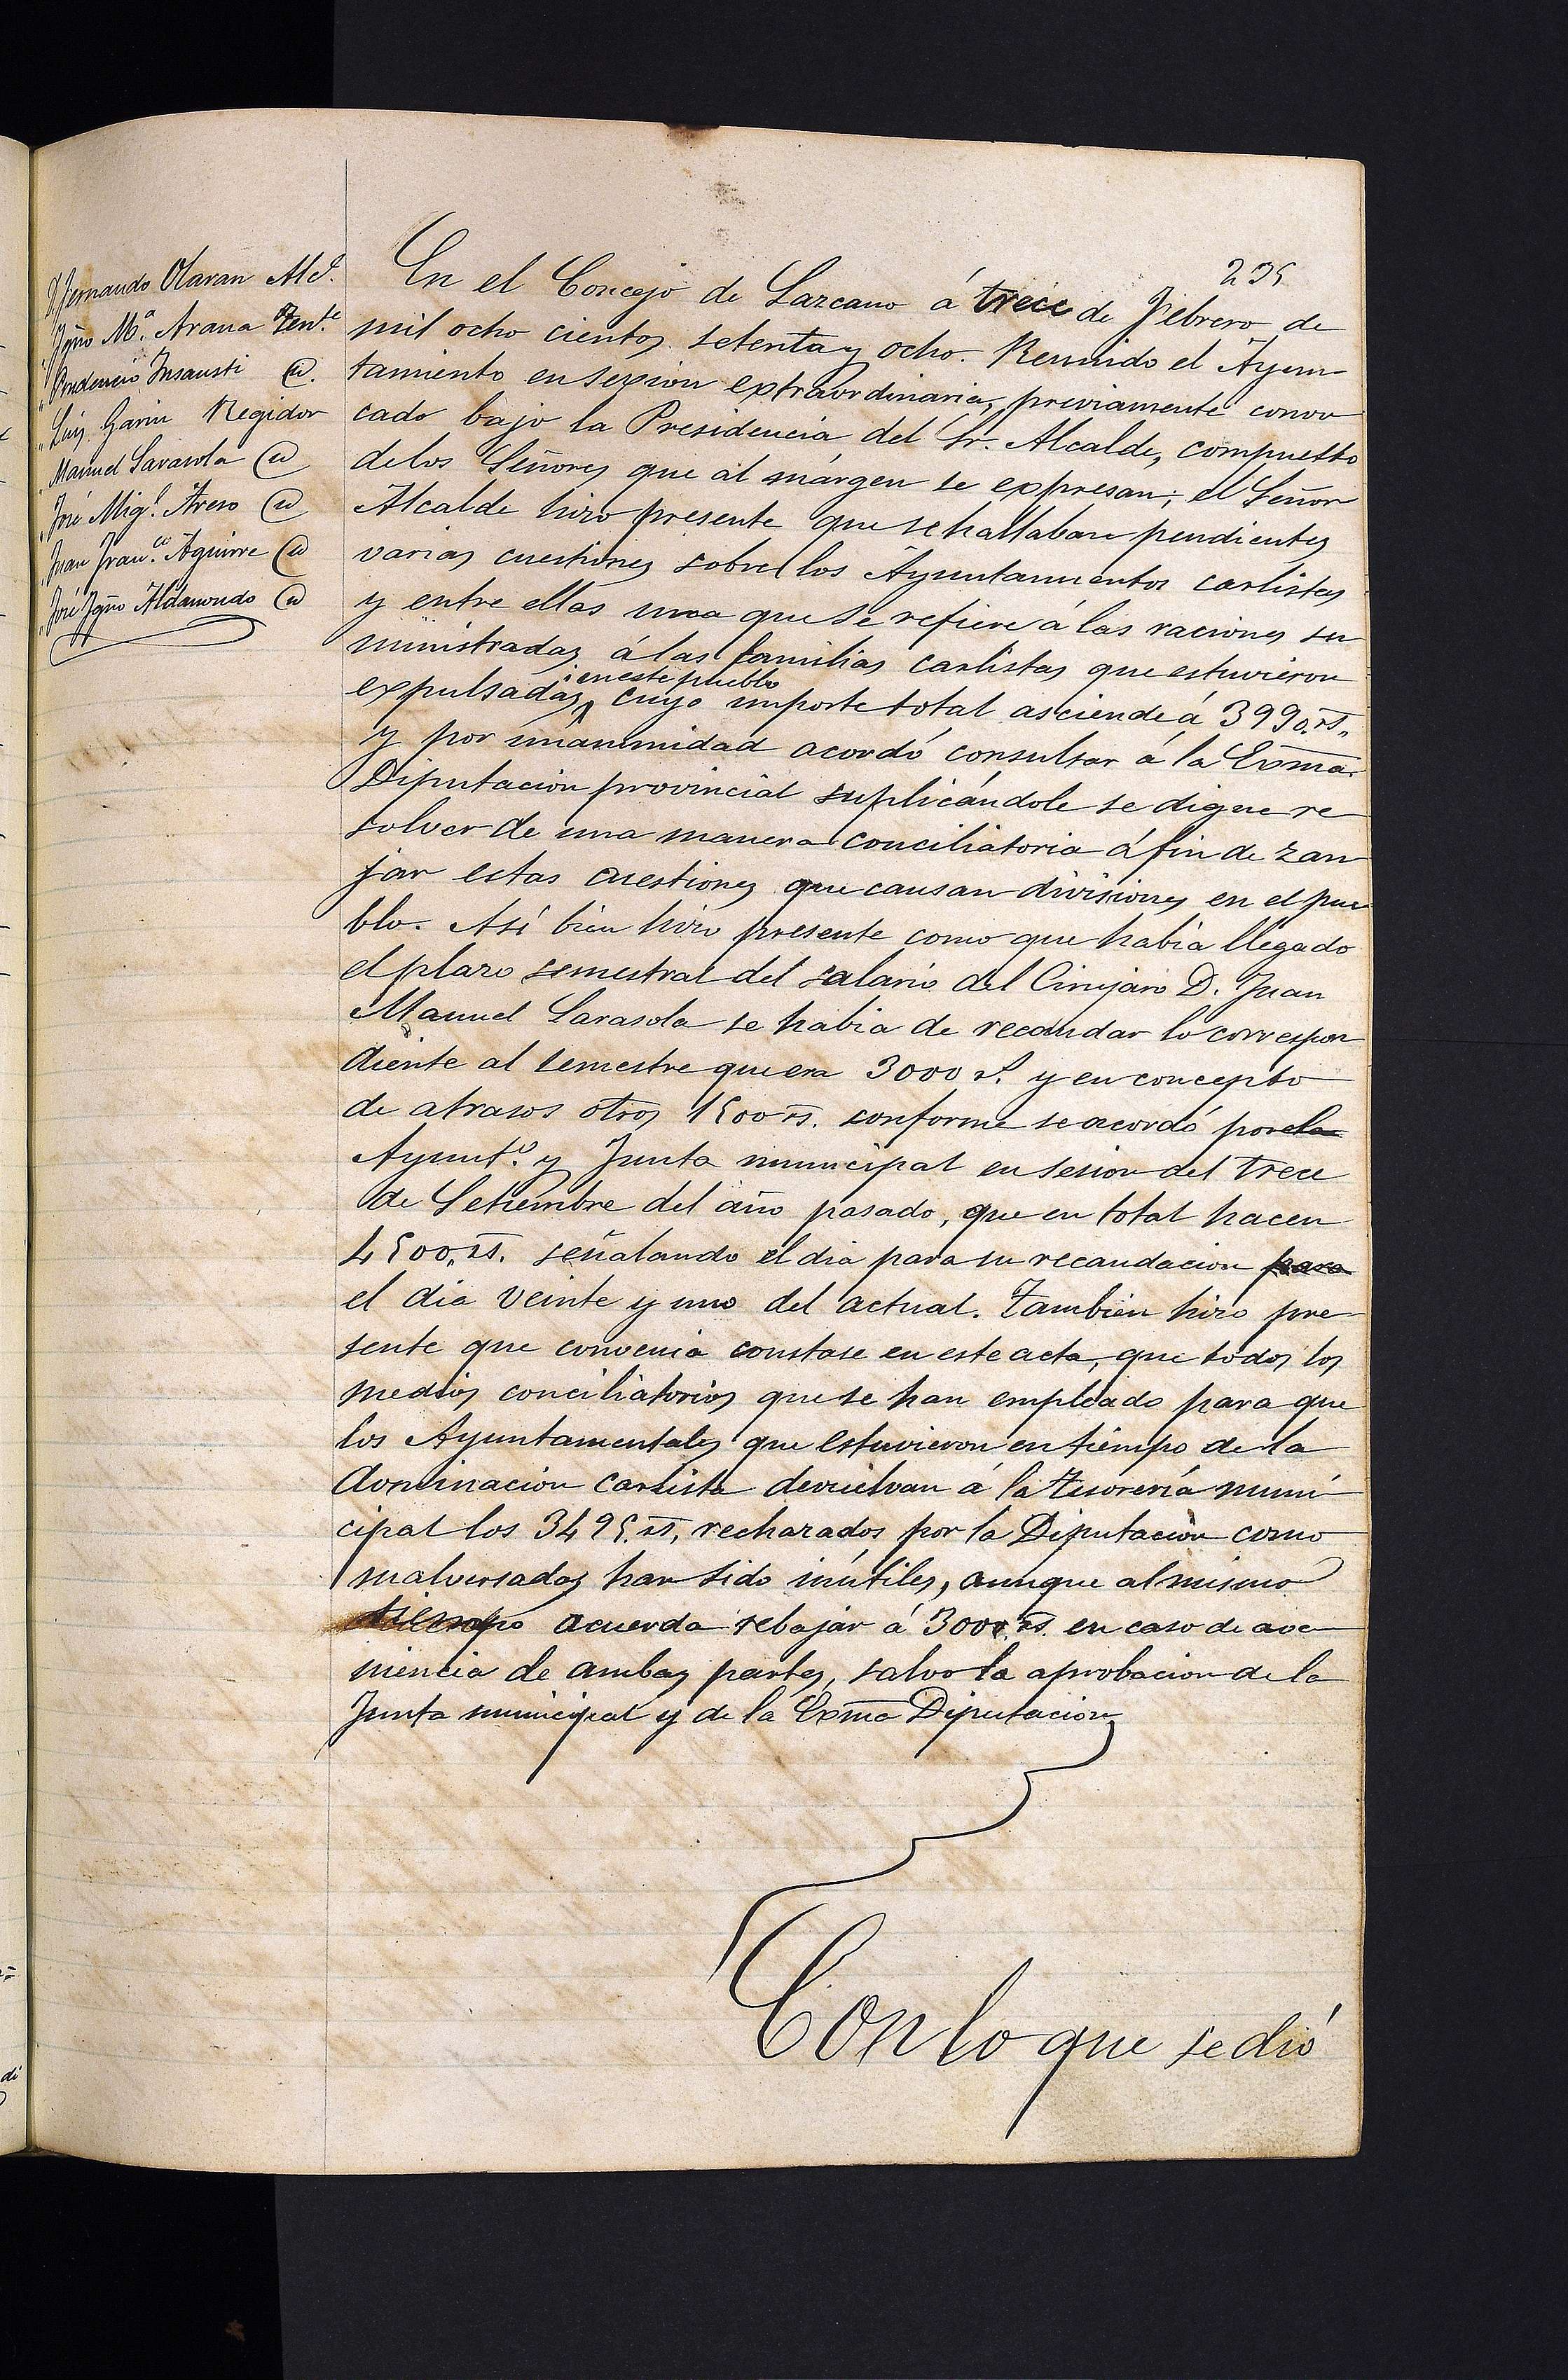 235
D. Fernando Olaran Alc.e
" Ygno M.a Arana Ten.te
" Prudencio Insausti @.
" Luis Garin Regidor
" Manuel Sarasola @
" José Mig.l Areso @
" Juan Fran.co Aguirre @
" José Ygno Aldamondo @
En el Concejo de Lazcano á trece de Febrero de
mil ocho cientos setenta y ocho. Reunido el Ayun
tamiento en sesion extraordinaria, préviamente convo
cado bajo la Presidencia del Sr. Alcalde, compuesto
de los Señores que al márgen se expresan; el Señor
Alcalde hizo presente que se hallaban pendientes
varias cuestiones sobre los Ayuntamientos carlistas
y entre ellas una que se refiere á las raciones su
ministradas á las familias carlistas que estuvieron
expulsadas en este pueblo, cuyo importe total asciende á 3990. rs.
y por unanimidad acordó consultar á la Exma.
Diputacion provincial suplicándole se digne re
solver de una manera conciliatoria á fin de zan
jar estas cuestiones que causan divisiones en el pue
blo. Así bien hizo presente como que habia llegado
el plazo semestral del salario del Cirujano D. Juan
Manuel Sarasola se habia de recaudar lo correspon
diente al semestre que era 3000 rs. y en concepto
de atrasos otros 1500 rs. conforme se acordó por la
Ayunt.o y Junta municipal en sesion del trece
de Setiembre del año pasado, que en total hacen
4500. rs. señalando el dia para su recaudacion para
el dia veinte y uno del actual. Tambien hizo pre
sente que convenia constase en este acta, que todos los
medios conciliatorios que se han empleado para que
los Ayuntamentales que estuvieron en tiempo de la
dominacion carlista devuelvan á la Tesorería muni
cipal los 3495. rs, rechazados por la Diputacion como
malversados han sido inútiles, aunque al mismo
tiempo acuerda rebajar á 3000. rs. en caso de ave
niencia de ambas partes, salvo la aprobacion de la
Junta municipal y de la Exma Diputacion
Con lo que se dió